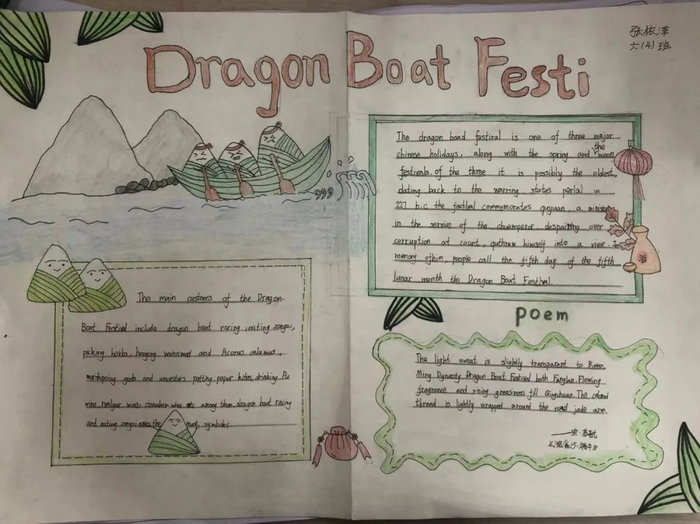 张依泽
六(4)班
Dragon Boat Festi
The dragon boad festival is one of three major
chinese holidays, along with the spring and the moon
festivals. of the three it is possibly the oldest,
dating back to the warring states in
227 b.c. the festival commemorates quyuan, a minister
in the service of the despairing over
corruption at court, himself into a river. In
memory people call the fifth day of the fifth
lunar month the Dragon Boat Festival.
The main customs of the Dragon
Boat Festival include dragon boat racing, eating zongzi,
picking herbs, hanging wormwood and Acorus calamus,
worshipping gods and ancestors, kites, drinking
wine wine, are among them dragon boat racing
and eating zongzi are the symbolic.
poem
The light sweat is slightly transparent to
Ming Dynasty Dragon Boat Festival bath Fanglan. Flowing
fragrance and rising greasiness fill Qingchuan. The colored
thread is lightly wrapped around the red jade arm,
——宋·苏轼
《浣溪沙·端午》